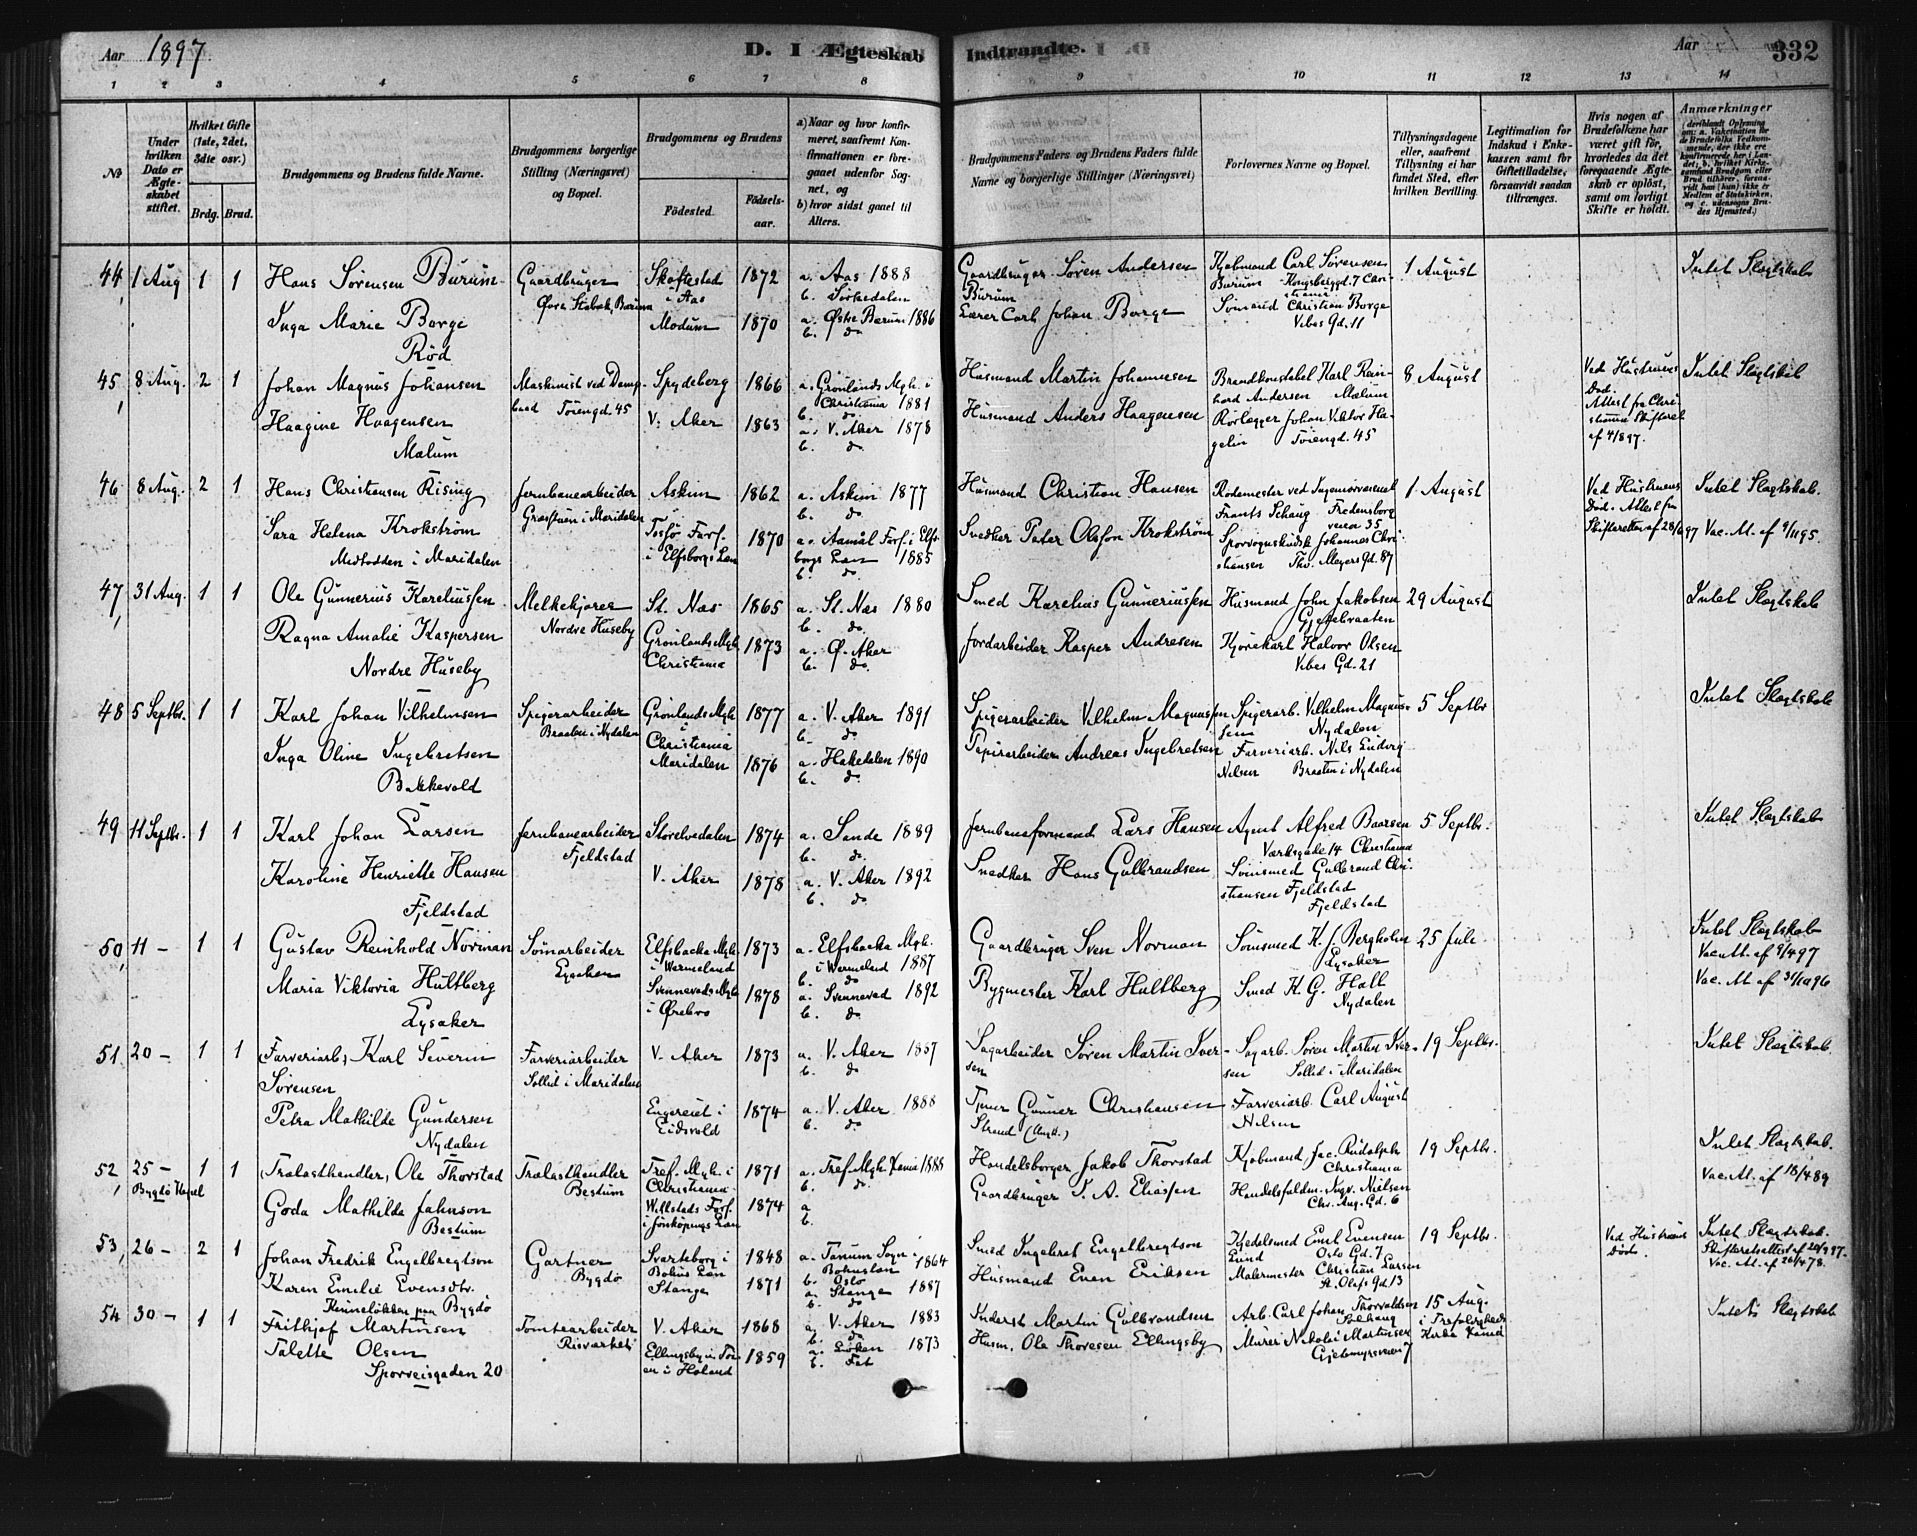 Aar 1897. D. I Ægteskab Indtraadte. Aar 332
1 2 3 4 5 6 7 8 9 10 11 12 13 14
№
Under hvilken Dato er Ægteskabet stiftet.
Hvilket Gifte (1ste, 2det, 3die osv.)
Brdg. Brud.
Brudgommens og Brudens fulde Navne.
Brudgommens borgerlige Stilling (Næringsvei) og Bopæl.
Brudgommens og Brudens
Födested. Födselsaar.
a) Naar og hvor konfirmeret, saafremt Konfirmationen er foregaaet udenfor Sognet, og
b) hvor sidst gaaet til Alters.
Brudgommens Faders og Brudens Faders fulde Navne og borgerlige Stillinger (Næringsvei)
Forlovernes Navne og Bopæl.
Tillysningsdagene eller, saafremt Tillysning ei har fundet Sted, efter hvilken Bevilling.
Legitimation for Indskud i Enkekassen samt for Giftetilladelse, forsaavidt saadan tiltrænges.
Hvis nogen af Brudefolkene har været gift før, hvorledes da det foregaaende Ægteskab er oplöst, samt om lovligt Skifte er holdt.
Anmærkninger
44, 1 Aug 1 1
Hans Sørensen Burum
Gaardbruger
Øvre Stabæk, Bærum
Skoftestad i Aas 1872
a. Aas 1888
b. Sørkedalen
Gaardbruger Søren Andersen Burum
Kjøbmand Carl Sørensen Burum Kongsbergd. 7 Christiania
1 August
Intet Slægtskab
Inga Marie Borge
Rød
Modum 1870
a. Østre Bærum 1886
b. do
Lærer Carl Johan Borge
Sømand Christian Borge
Vibes Gd. 11
45, 8 Aug. 2 1
Johan Magnus Johansen
Maskinist ved Dampbaad Töiengd. 45
Spydeberg 1866
a. Grønlands Mgh. i Christiania 1881
b. do
Husmand Martin Johannesen
Brandkonstabel Karl Reinhard Andersen Mælum
8 August
Ved Hustruens Død. Attest fra Christiania Skifteret af 4/8 97.
Intet Slægtskab
Haagine Haagensen
Mælum
V. Aker 1863
a. V. Aker 1878
b. do
Husmand Anders Haagensen
Rørlægger Johan Viktor Hagelin Töiengd. 45
46 8 Aug. 2 1
Hans Christiansen Rising
Jernbanearbeider
Græsstuen i Maridalen
Askim 1862
a. Askim 1877
b. do
Husmand Christian Hansen
Rodemester ved Ingeniørvæsenet Frants Schaug Fredensborgveien 35
1 August
Ved Hustruens Død. Attest fra Skifteretten af 28/6 97
Intet Slægtskab.
Vac. At. af 9/11 95.
Sara Helena Krokström
Medtodden i Maridalen
Tosjø Fors. i Elfsborgs Læn 1870
a. Aamål Fors. i Elfsborgs Læn 1885
b. do
Snedker Peter Olsson Krokström
Sporvognskudsk Johannes Christiansen Thv. Meyers Gd. 87
47, 31 Aug. 1 1
Ole Gunnerius Kareliussen
Melkekjører
Nordre Huseby
St. Næs 1865
a. St. Næs 1880
b. do
Smed Karelius Gunneriussen
Husmand John Jakobsen
29 August
Intet Slægtskab
Ragna Amalie Kaspersen
Nordre Huseby
Grønlands Mgh. Christiania 1873
a. Ø. Aker
b. do
Jordarbeider Kasper Andresen
Kjørekarl Halvor Olsen
Vibes Gd. 21
48 5 Septbr. 1 1
Karl Johan Vilhelmsen
Spigerarbeider
Braaten i Nydalen
Grønlands Mgh. Christiania 1877
a. V. Aker 1891
b. do
Spigerarbeider Vilhelm Magnussen
Spigerarb. Vilhelm Magnussen Nydalen
5 Septbr
Intet Slægtskab
Inga Oline Ingebretsen
Bakkevold
Maridalen 1876
a. Hakedalen 1890
b. do
Papirarbeider Andreas Ingebretsen
Farveriarb. Nils Ludvig Nilsen Braaten i Nydalen
49 11 Septbr. 1 1
Karl Johan Larsen
Jernbanearbeider
Fjeldstad
Storelvedalen 1874
a. Sande 1889
b. do.
Jernbaneformand Lars Hansen
Agent Alfred Baarsen
Værksgade 14 Christiania
5 Septbr.
Intet Slægtskab
Karoline Henriette Hansen
Fjeldstad
V. Aker 1878
a. V. Aker 1892
b. do
Snedker Hans Gulbrandsen
Sömsmed Gulbrand Christiansen Fjeldstad
Fjeldstad
50, 11 – 1 1
Gustav Reinhold Norman
Sömarbeider
Lysaker
Elfsbacka Mgh. i Wermeland 1873
a. Elfsbacka Mgh. i Wermeland 1887
b. do
Gaardbruger Sven Norman
Sömsmed K. J. Bergholm
Lysaker
25 Juli
Intet Slægtskab
Vac. At. af 9/4 97
Maria Viktoria Hultberg
Lysaker
Svennevads Mgh. i Ørebro 1878
a. Svennevad 1892
b. do
Bygmester Karl Hultberg
Smed K. G. Hall
Nydalen
Vac. At. af 31/10 96
51, 20 – 1 1
(Farveriarb.) Karl Severin Sørensen
Farveriarbeider
Sollid i Maridalen
V. Aker 1873
a. V. Aker 1887
b. do
Sagarbeider Søren Martin Iversen
Sagarb. Søren Martin Iversen Sollid i Maridalen
19 Septbr.
Intet Slægtskab.
Petra Mathilde Gundersen
Nydalen
Engereiet i Eidsvold 1874
a. V. Aker 1888
b. do
Gunner Christiansen Strand (Angtl.)
Farveriarb. Carl August Nilsen
52, 25 – Bygdø Kapel 1 1
(Trælasthandler) Ole Thorstad
Trælasthandler
Bestum
Tref. Mgh. i Christiania 1871
a. Tref. Mgh. Xania 1888
b. do.
Handelsborger Jakob Thorstad
Kjøbmand Jac. Rudolph
Christiania
19 Septbr.
Intet Slægtskab.
Goda Mathilda Jahnson
Bestum
Willstads Fors. i Jönköpings Læn 1874
a
b.
Gaardbruger J. A. Eliassen
Handelsfuldm. Ingv. Nielsen
Chr. Aug. Gd. 6
Vac. At. af 18/4 89
53, 26 – 2 1
Johan Fredrik Engelbregtson
Gartner
Bygdø
Svarteborg i Bohus Læn 1848
a. Tanum Sogn i Bohuslän 1864
b. Oslo
Smed Ingebret Engelbregtson
Kjedelsmed Emil Evensen Lund Oslo Gd. 7
19 Septbr.
Ved Hustruens Død.
Intet Slægtskab.
Vac. At. af 26/4 78.
Karen Emilie Evensdtr.
Stange 1871
a. Stange 1887
b. do
Husmand Even Eriksen
Malermester Christian Larsen
St. Olafs Gd. 13
54, 30 – 1 1
Frithjof Martinsen
Tomtearbeider
V. Aker 1868
a. V. Aker 1883
b. do
Inderst Martin Gulbrandsen
Arb. Carl Johan Thorvaldsen
15 Aug. i Trefoldigheds Kirke Xania
Intet Slægtskab
Talette Olsen
Sporveisgaden 20
1859
a. Löken 1873
b. Fet
Husm. Ole Thoresen Ellingsby
Murer Nikolai Martinsen
Gjetemyrsveien 7